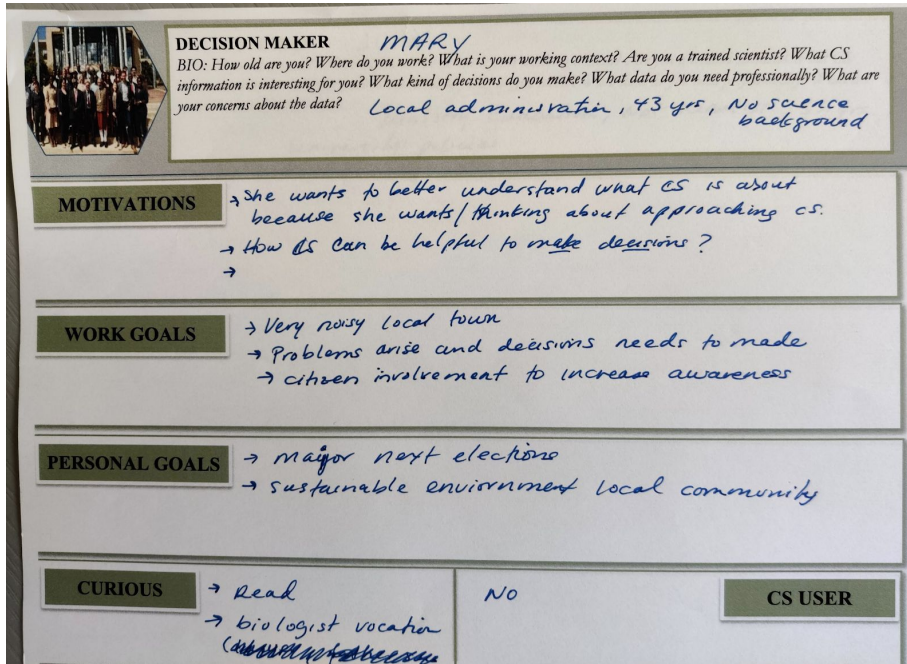 DECISION MAKER MARY
BIO: How old are you? Where do you work? What is your working context? Are you a trained scientist? What CS
information is interesting for you? What kind of decisions do you make? What data do you need professionally? What are
your concerns about the data? Local administration, 43 yrs, No science
background
MOTIVATIONS
→ She wants to better understand what CS is about
because she wants/thinking about approaching CS.
→ How CS can be helpful to make decisions?
→
WORK GOALS
→ Very noisy local town
→ Problems arise and decisions needs to made
→ citizen involvement to increase awareness
PERSONAL GOALS
→ mayor next elections
→ sustainable enviornment local community
CURIOUS
→ Read
→ biologist vocation
NO
CS USER